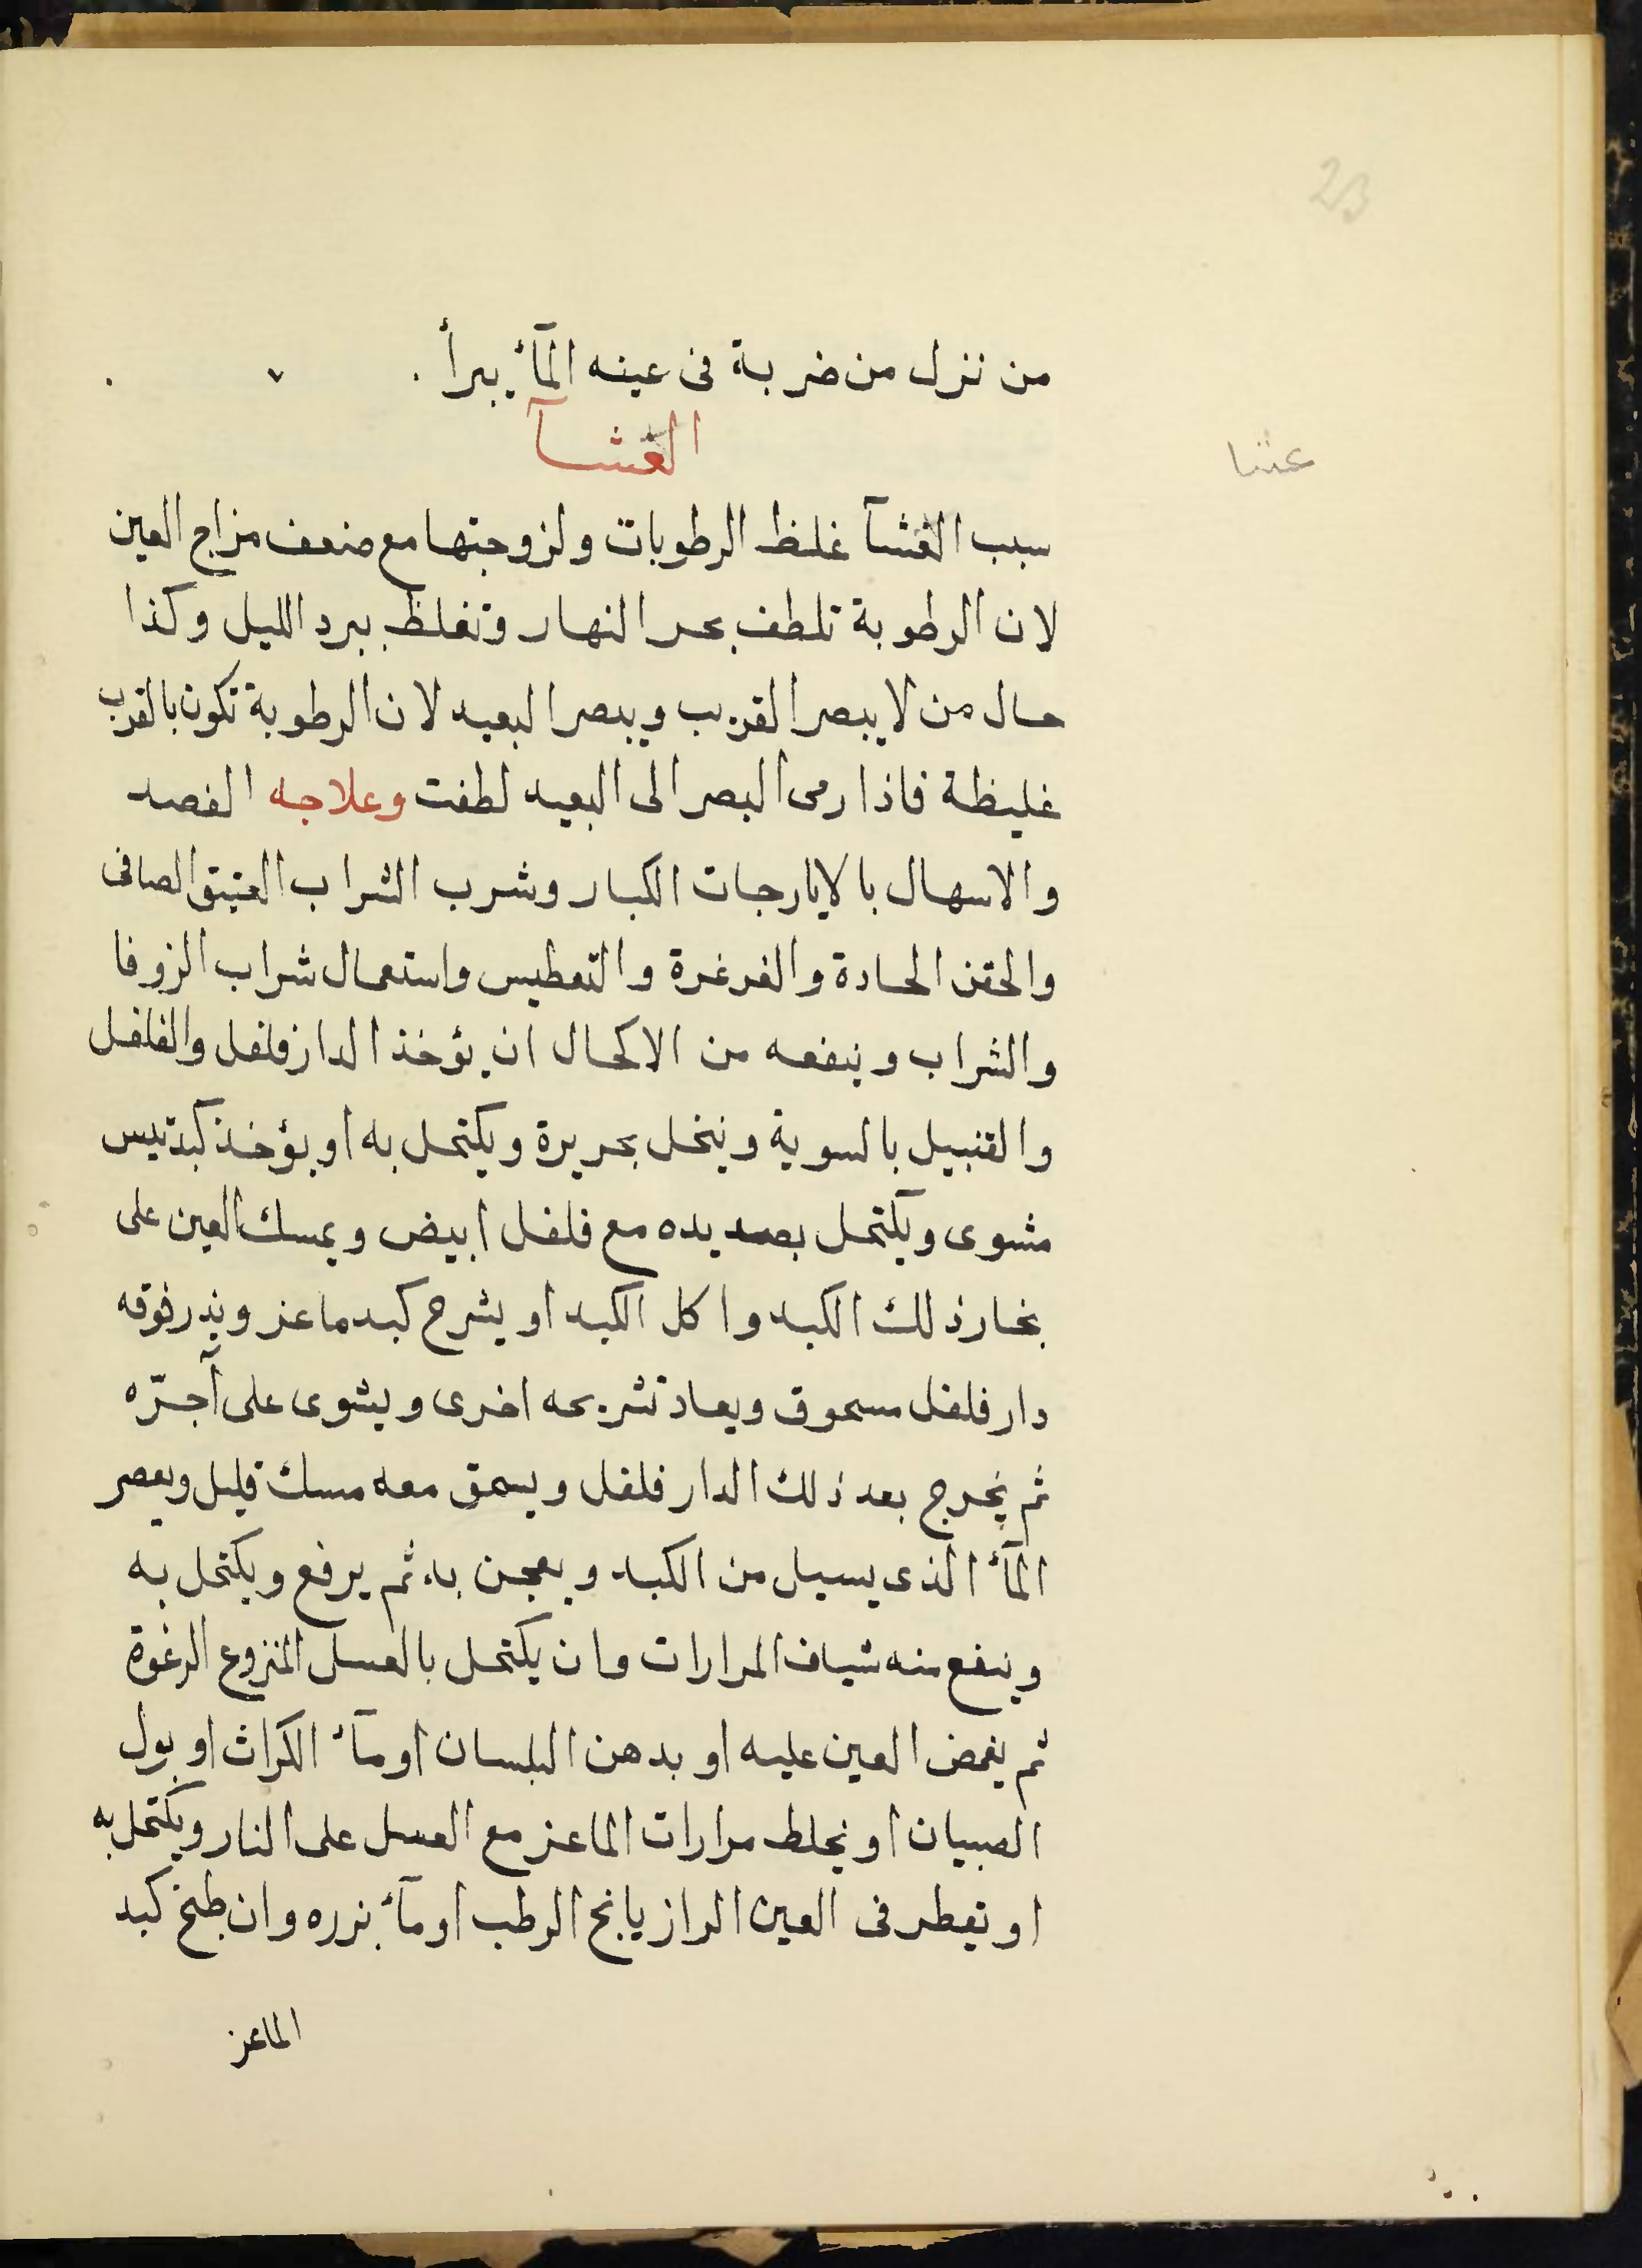 23
من نزل من ضربة فى عينه المآء يبرأ .
الغشآ
عشا
سبب الغشآ غلظ الرطوبات ولزوجتها مع ضعف مزاج العين
لان الرطوبة تلطف بحر النهار وتغلظ ببرد الليل وكذا
حال من لا يبصر القريب ويبصر البعيد لان الرطوبة تكون بالقرب
غليظة فاذا رمى البصر الى البعيد لطفت وعلاجه الفصد
والاسهال بالايارجات الكبار وشرب الشراب العتيق الصافى
والحقن الحادة والغرغرة والتعطيس واستعمال شراب الزوفا
والشراب وينفعه من الاكحال ان يؤخذ الدارفلفل والفلفل
والقنبيل بالسوية وينخل بحريرة ويكتحل به او يؤخذ كبد تيس
مشوى ويكتحل بصديده مع فلفل ابيض ويمسك العين على
بخار ذلك الكبد واكل الكبد او يشرح كبد ماعز ويذر فوقه
دارفلفل مسحوق ويعاد تشريحه اخرى ويشوى على آجرّه
ثم يخرج بعد ذلك الدارفلفل ويسحق معه مسك قليل ويعصر
المآء الذى يسيل من الكبد ويعجن به ثم يرفع ويكتحل به
وينفع منه شياف المرارات وان يكتحل بالعسل المنزوع الرغوة
ثم يغمض العين عليه او بدهن البلسان او مآء الكراث او بول
الصبيان او يخلط مرارات الماعز مع العسل على النار ويكتحل به
او يقطر فى العين الرازيانج الرطب او مآء بزره وان طبخ كبد
الماعز